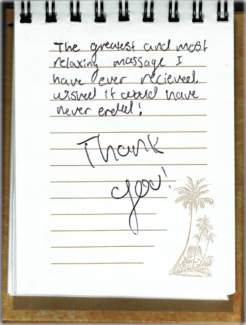 The greatest and most
relaxing massage I
have ever recieved,
wished it could have
never ended!
Thank
you!